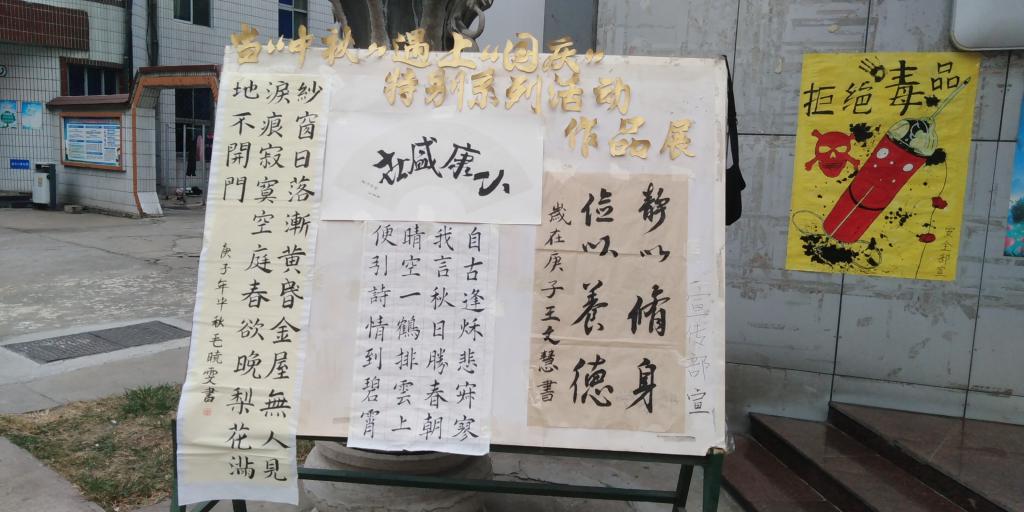 当“中秋”遇上“国庆”
特别系列活动
作品展
紗窗日落漸黄昏金屋無人見
淚痕寂寞空庭春欲晚梨花滿
地不開門
庚子年中秋毛曉雯書
盛康
自古逢秌悲寂寒
我言秋日勝春朝
晴空一鶴排雲上
便引詩情到碧霄
靜以脩身
俭以養德
歲在庚子王文慧書
宣传部 宣
拒绝毒品
安全部宣